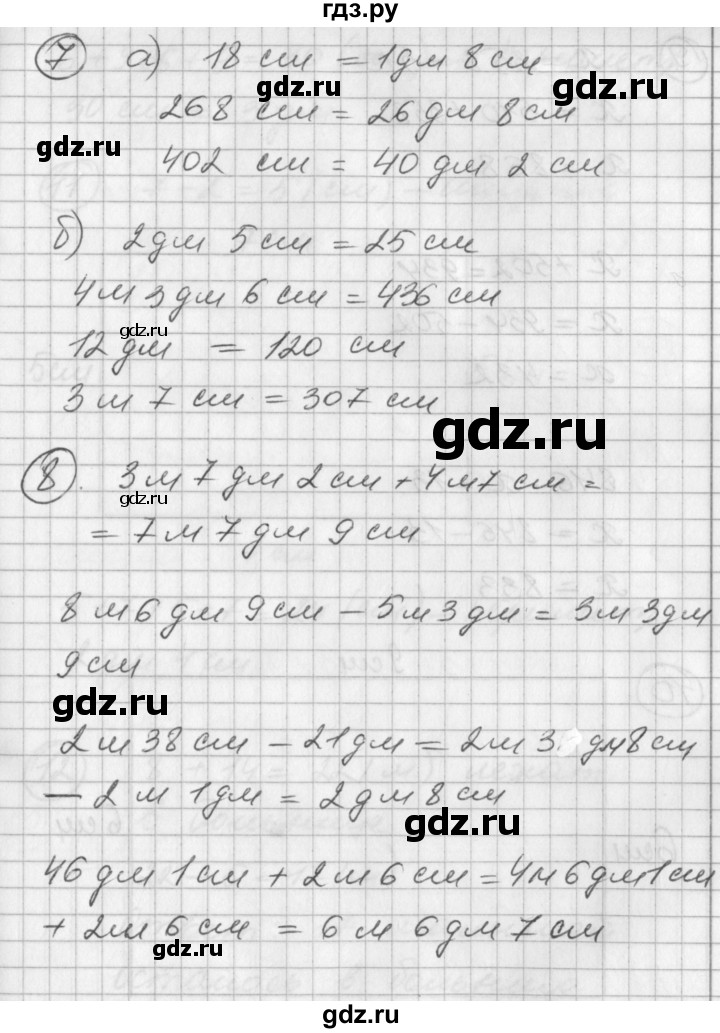 гдз.ру
7 а) 18 см = 1 дм 8 см
gdz.ru
268 см = 26 дм 8 см
gdz.ru
402 см = 40 дм 2 см
б) 2 дм 5 см = 25 см
4 м 3 дм 6 см = 436 см
gdz.ru
12 дм = 120 см
3 м 7 см = 307 см
gdz.ru
8. 3 м 7 дм 2 см + 4 м 7 см =
gdz.ru
= 7 м 7 дм 9 см
8 м 6 дм 9 см – 5 м 3 дм = 3 м 3 дм
9 см
gdz.ru
2 м 38 см – 21 дм = 2 м 3 дм 8 см
– 2 м 1 дм = 2 дм 8 см
gdz.ru
46 дм 1 см + 2 м 6 см = 4 м 6 дм 1 см
+ 2 м 6 см = 6 м 6 дм 7 см
gdz.ru
gdz.ru